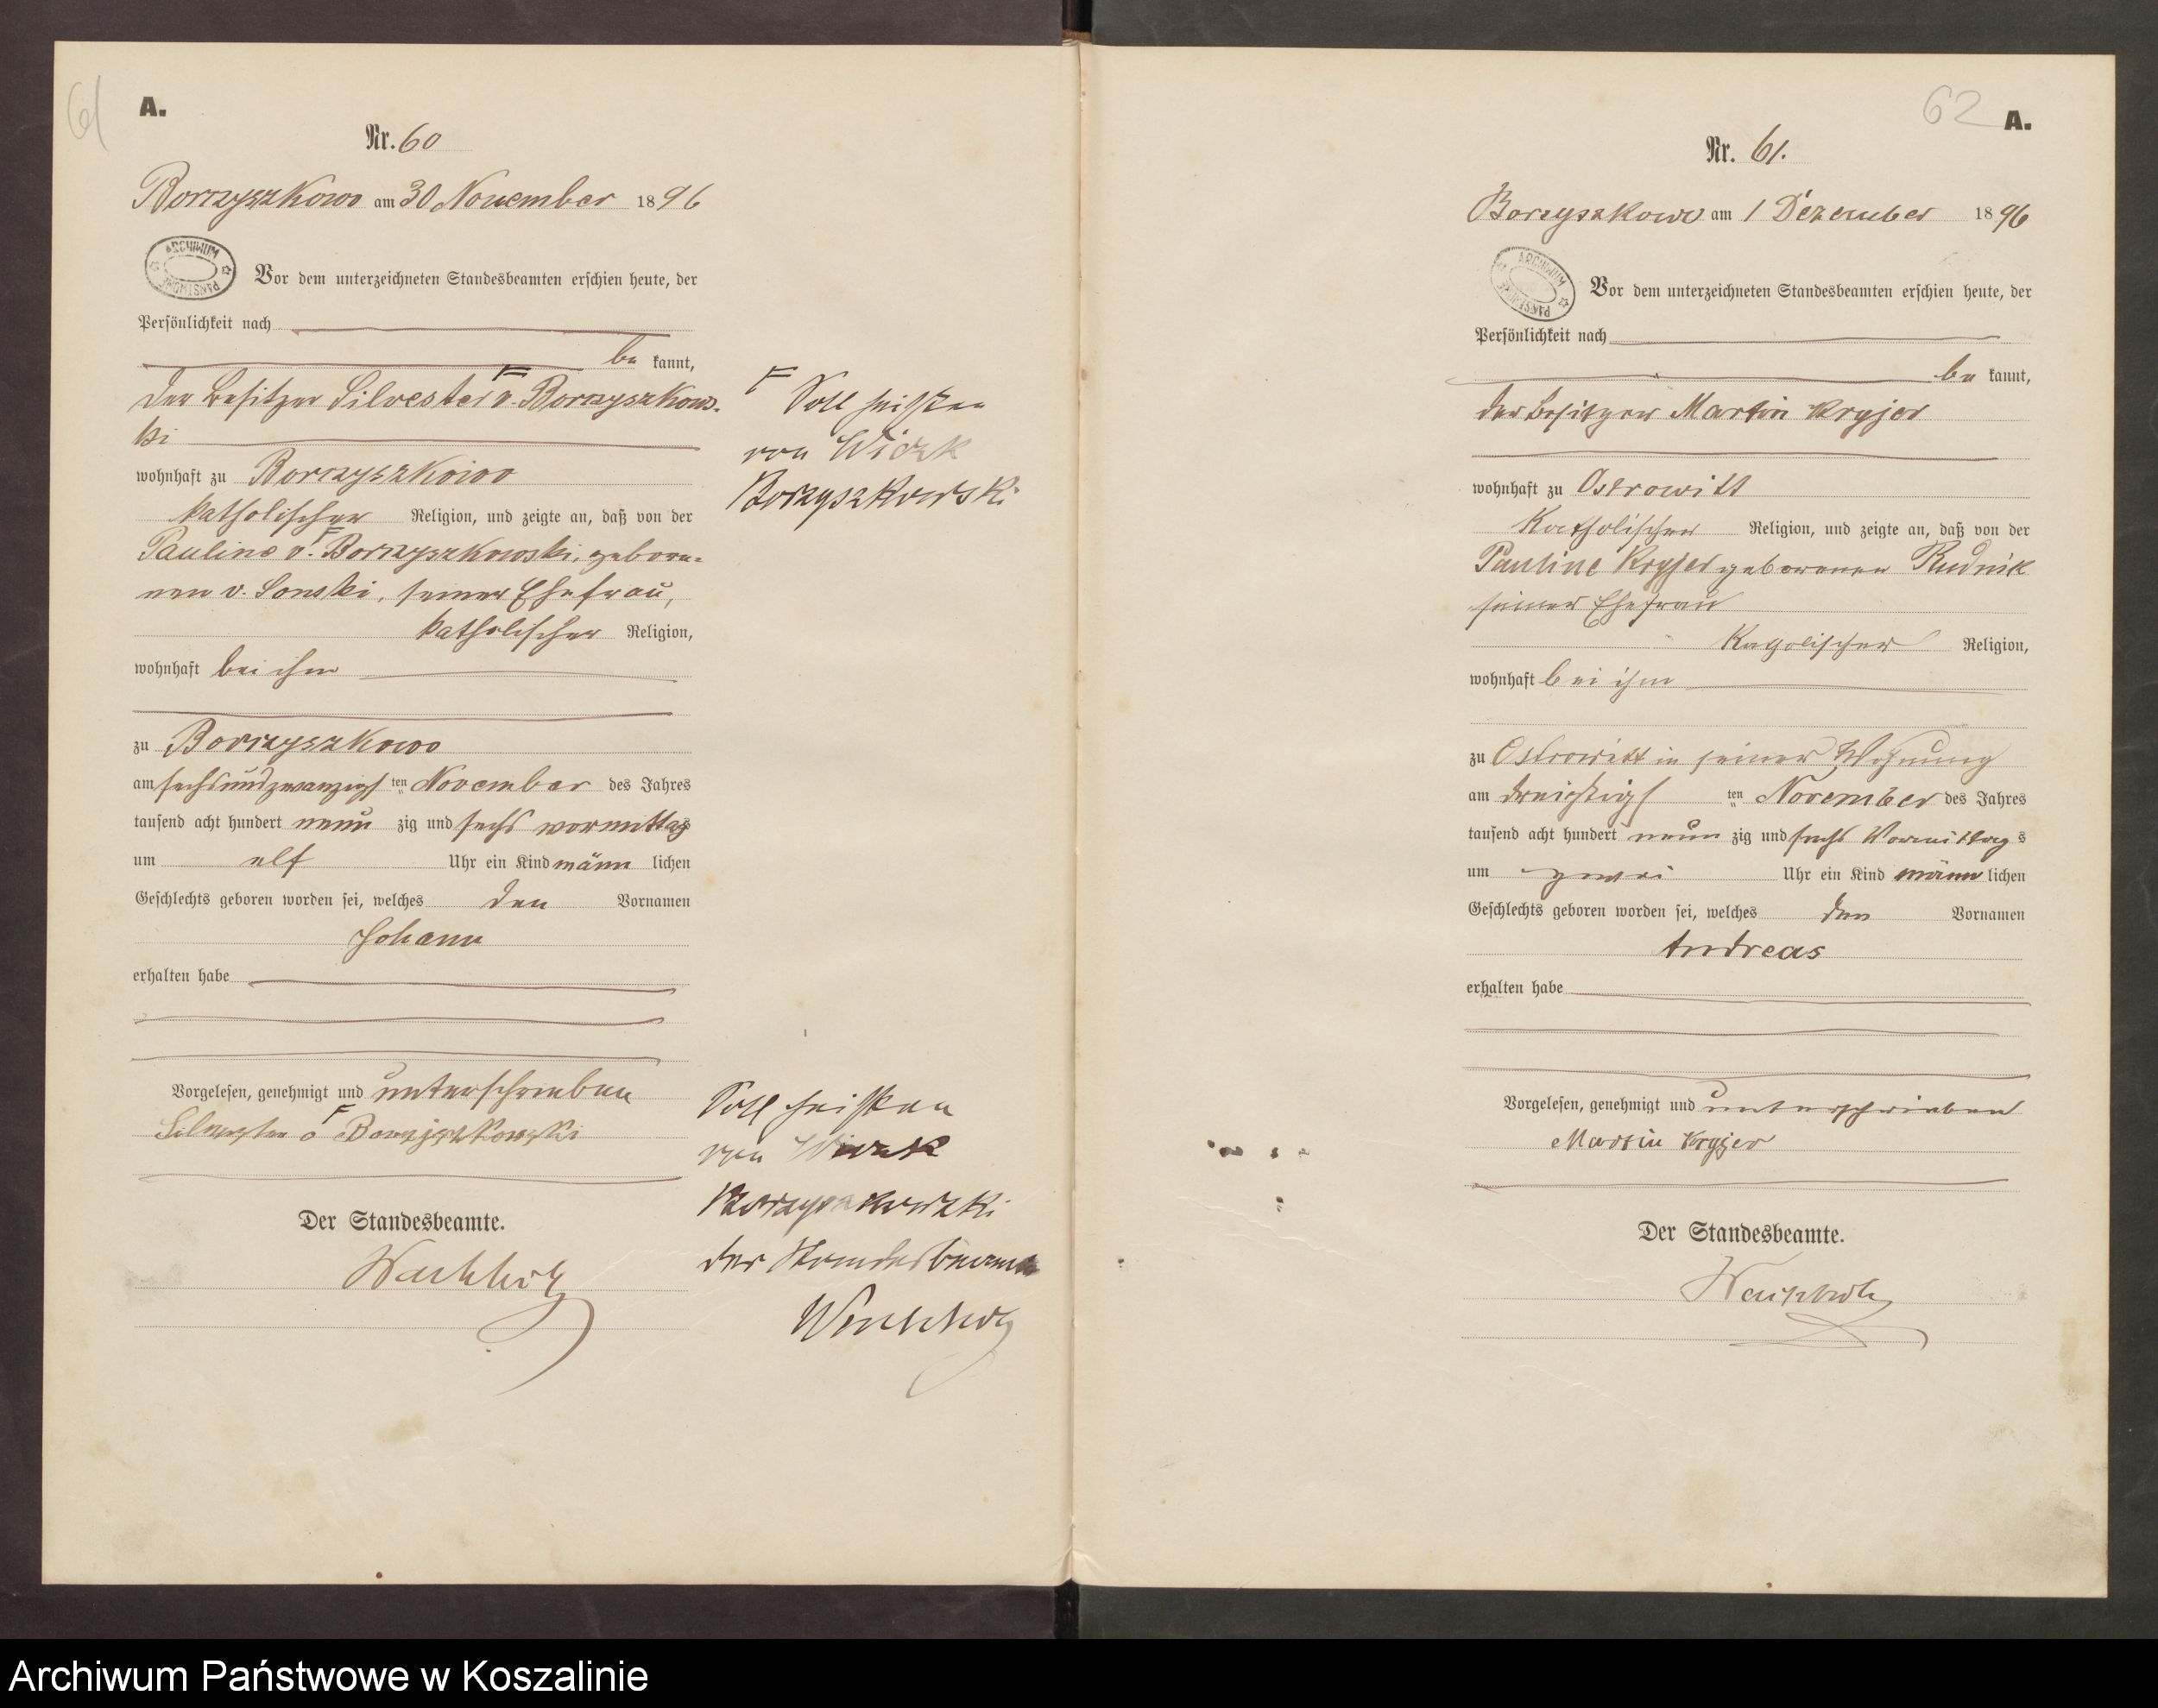 61
A.
Nr. 60
Borzyszkowo am 30 November 1896
ARCHIWUM PAŃSTWOWE
Vor dem unterzeichneten Standesbeamten erschien heute, der
Persönlichkeit nach
be kannt,
der Besitzer Silvester v. Borzyszkows-
ki
wohnhaft zu Borzyszkowo
katholischer Religion, und zeigte an, daß von der
Pauline v. Borzyszkowski, gebore-
nen v. Lonski, seiner Ehefrau,
katholischer Religion,
wohnhaft bei ihm
zu Borzyszkowo
am sechsundzwanzigs ten November des Jahres
tausend acht hundert neun zig und sechs vormittags
um elf Uhr ein Kind männ lichen
Geschlechts geboren worden sei, welches den Vornamen
Johann
erhalten habe
Vorgelesen, genehmigt und unterschrieben
Silvester v Borzyszkowski
Der Standesbeamte.
Wachholz
Soll heißen
von Wiczk
Borzyszkowski
Soll heißen
von Wiczk
Borzyszkowski
der Standesbeamte
Wachholz
62 A.
Nr. 61.
Borzyszkowo am 1 Dezember 1896
ARCHIWUM PAŃSTWOWE
Vor dem unterzeichneten Standesbeamten erschien heute, der
Persönlichkeit nach
be kannt,
der Besitzer Martin Kryjer
wohnhaft zu Ostrowitt
Katholischer Religion, und zeigte an, daß von der
Pauline Kryjer geborenen Rudnik
seiner Ehefrau
Katholischer Religion,
wohnhaft bei ihm
zu Ostrowitt in seiner Wohnung
am dreißigs ten November des Jahres
tausend acht hundert neun zig und sechs Vormittag s
um zwei Uhr ein Kind männ lichen
Geschlechts geboren worden sei, welches den Vornamen
Andreas
erhalten habe
Vorgelesen, genehmigt und unterschrieben
Martin Kryjer
Der Standesbeamte.
Wachholz
Archiwum Państwowe w Koszalinie